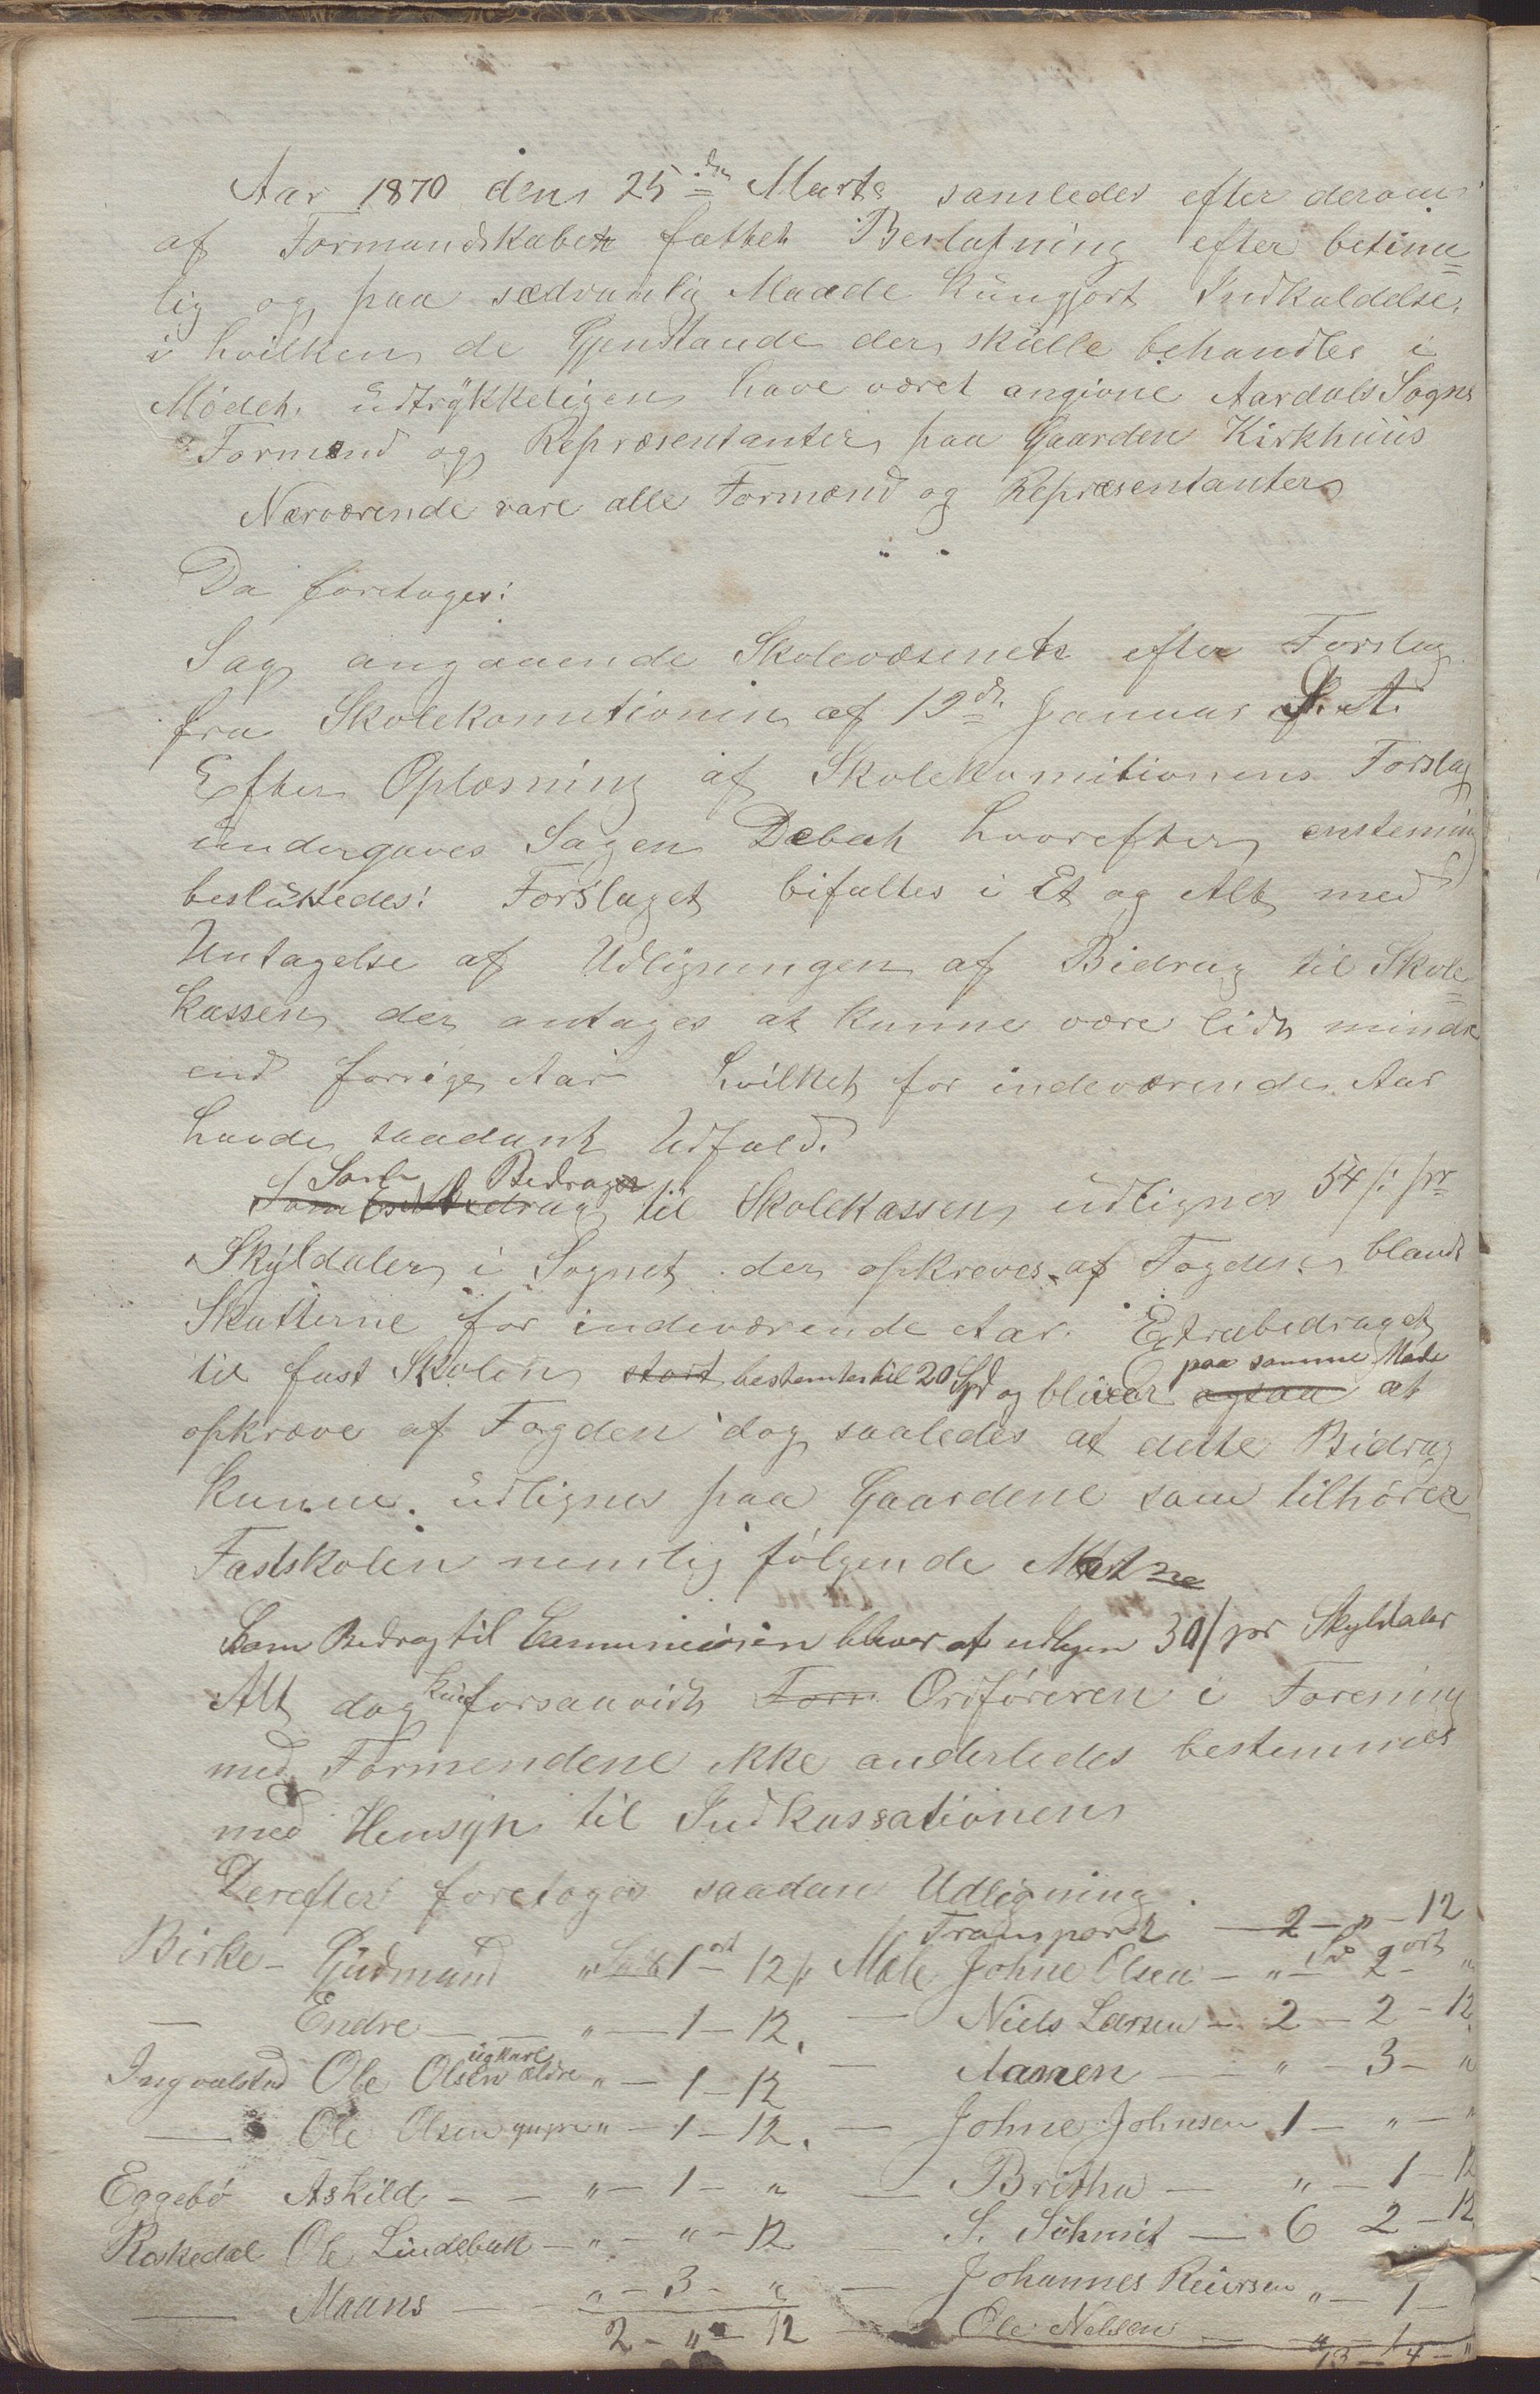 Aar 1870 den 25de Marts samledes efter derom
af Formandskabet fattet Beslutning efter betime=
lig og paa sædvanlig Maade kungjort Indkaldelse,
i hvilken de Gjenstande der skulle behandles i
Mødet, udtrykkeligen have været angivne Aardals Sogns
Formænd og Repræsentanter paa Gaarden Kirkhuus
Nærværende vare alle Formænd og Repræsentanter
Da foretoges:
Sag angaaende Skolevæsenet efter Forslag
fra Skolekomitionin af 12dn Januar d. A.
Efter Oplæsning af Skolekomitionens Forslag
undergaves Sagen Debat hvorefter enstemmig
besluttedes: Forslaget bifaltes i Et og Alt med
Untagelse af Udligningen af Bidrag til Skole=
kassen der antages at kunne være lidt mindre
end forrige Aar hvilket for indeværende Aar
havde saadant Udfald.
Som Bedrag til Skolekassen udlignes 54 s: pr
Skyldaler i Sognet der opkreves af Fogden blandt
Skatterne for indeværende Aar. Extrabedraget
til fast Skolen stort bestemtes til 20 Spd og bliver ogsaa paa samme Made at
opkræve af Fogden dog saaledes at dette Bidrag
kunne udlignes paa Gaardene som tilhører
Fastskolen nemlig følgende Mat no
Som Bedrag til Communisien bliver at udligne 30 s pr Skyldaler
Alt dog kun forsaavidt Form Ordføreren i Forening
med Formendene ikke anderledes bestemmes
med Hensyn til Indkassationen
Derefter foretoges saadan Udligning.
Transport — 2 — " — 12
Birke — Gudmund " Spd 1 ort 12 s: Mæle Johne Olsen — " Spd 2 ort "
— Endre — " — 1 — 12. — Niels Larsen — 2 — 2 — 12
Ingvalstad Ole Olsen ældre " — 1 — 12 — Aanen — " — 3 — "
— Ole Olsen yngre " — 1 — 12. — Johne Johnsen 1 — " — "
Eggebø Askild — " — 1 — " — Britha — " — 1 — 12
Roskedal Ole Lindebak — " — " — 12 S. Schmit — 6 2 — 12
— Maans — " — 3 — " — Johannes Reiersen " — 1 —
2 — " — 12 — Ole Nelsen — " — 1 —
13 — 4 — "